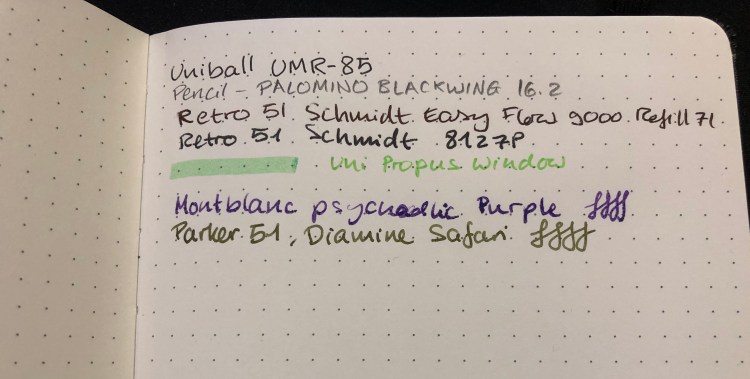 Uniball UMR-85
Pencil - PALOMINO BLACKWING 16.2
Retro 51. Schmidt. Easy Flow 9000. Refill 71.
Retro. 51. Schmidt 8127P
Uni Propus Window
Montblanc psychedelic Purple ffff
Parker 51, Diamine Safari ffff